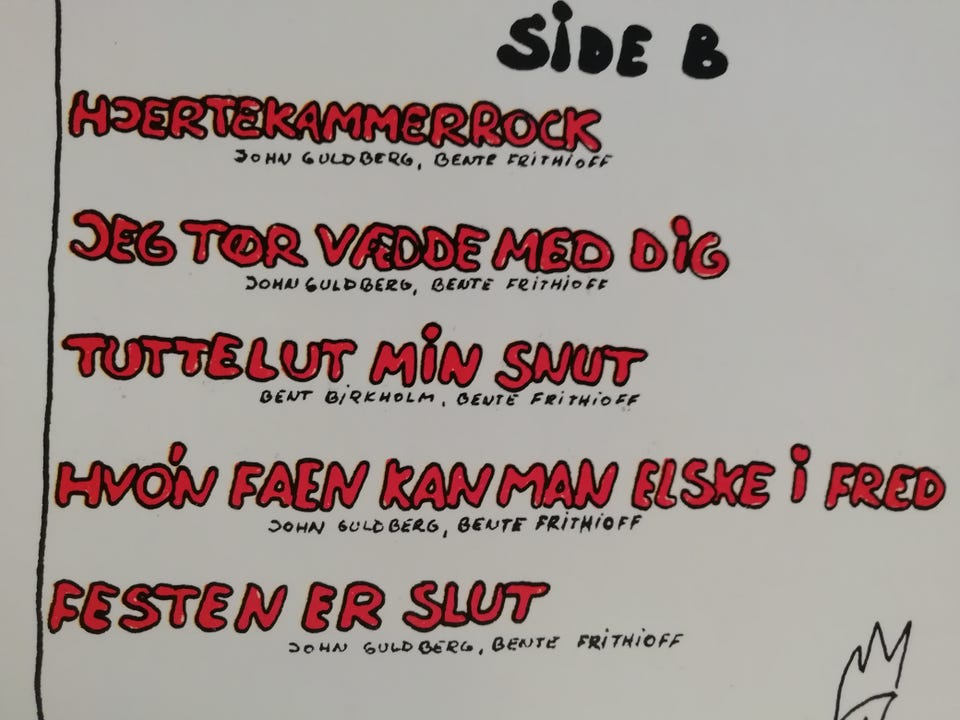 SIDE B
HJERTEKAMMERROCK
JOHN GULDBERG, BENTE FRITHIOFF
JEG TØR VÆDDE MED DIG
JOHN GULDBERG, BENTE FRITHIOFF
TUTTELUT MIN SNUT
BENT BIRKHOLM, BENTE FRITHIOFF
HVO'N FAEN KAN MAN ELSKE I FRED
JOHN GULDBERG, BENTE FRITHIOFF
FESTEN ER SLUT
JOHN GULDBERG, BENTE FRITHIOFF